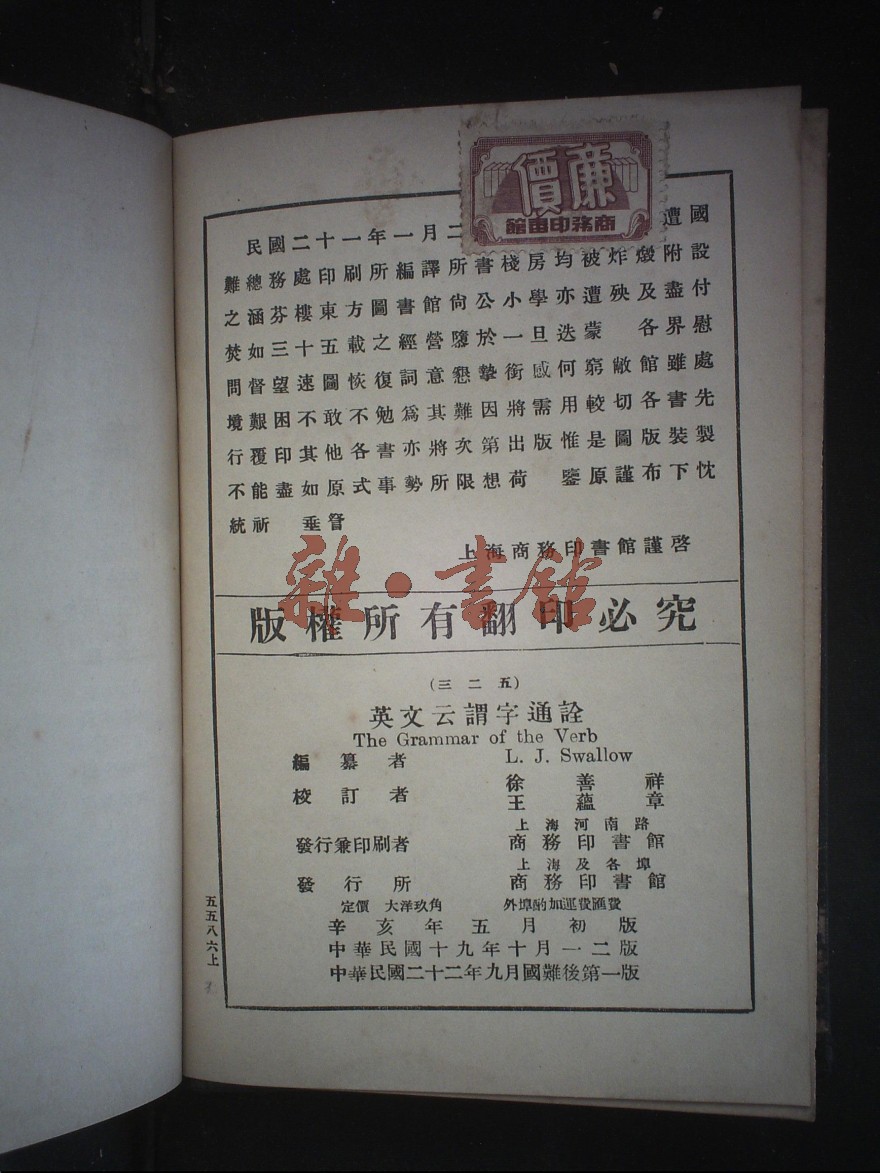 廉價
商務印書館
民國二十一年一月二 遭國
難總務處印刷所編譯所書棧房均被炸燬附設
之涵芬樓東方圖書館尙公小學亦遭殃及盡付
焚如三十五載之經營隳於一旦迭蒙 各界慰
問督望速圖恢復詞意懇摯銜感何窮敝館雖處
境艱困不敢不勉爲其難因將需用較切各書先
行覆印其他各書亦將次第出版惟是圖版裝製
不能盡如原式事勢所限想荷 鑒原謹布下忱
統祈 垂詧
上海商務印書館謹啓
雜·書館
版權所有翻印必究
(三二五)
英文云謂字通詮
The Grammar of the Verb
編纂者 L. J. Swallow
校訂者 徐善祥 王蘊章
上海河南路
發行兼印刷者 商務印書館
上海及各埠
發行所 商務印書館
定價 大洋玖角 外埠酌加運費匯費
辛亥年五月初版
中華民國十九年十月一二版
中華民國二十二年九月國難後第一版
五五八六上